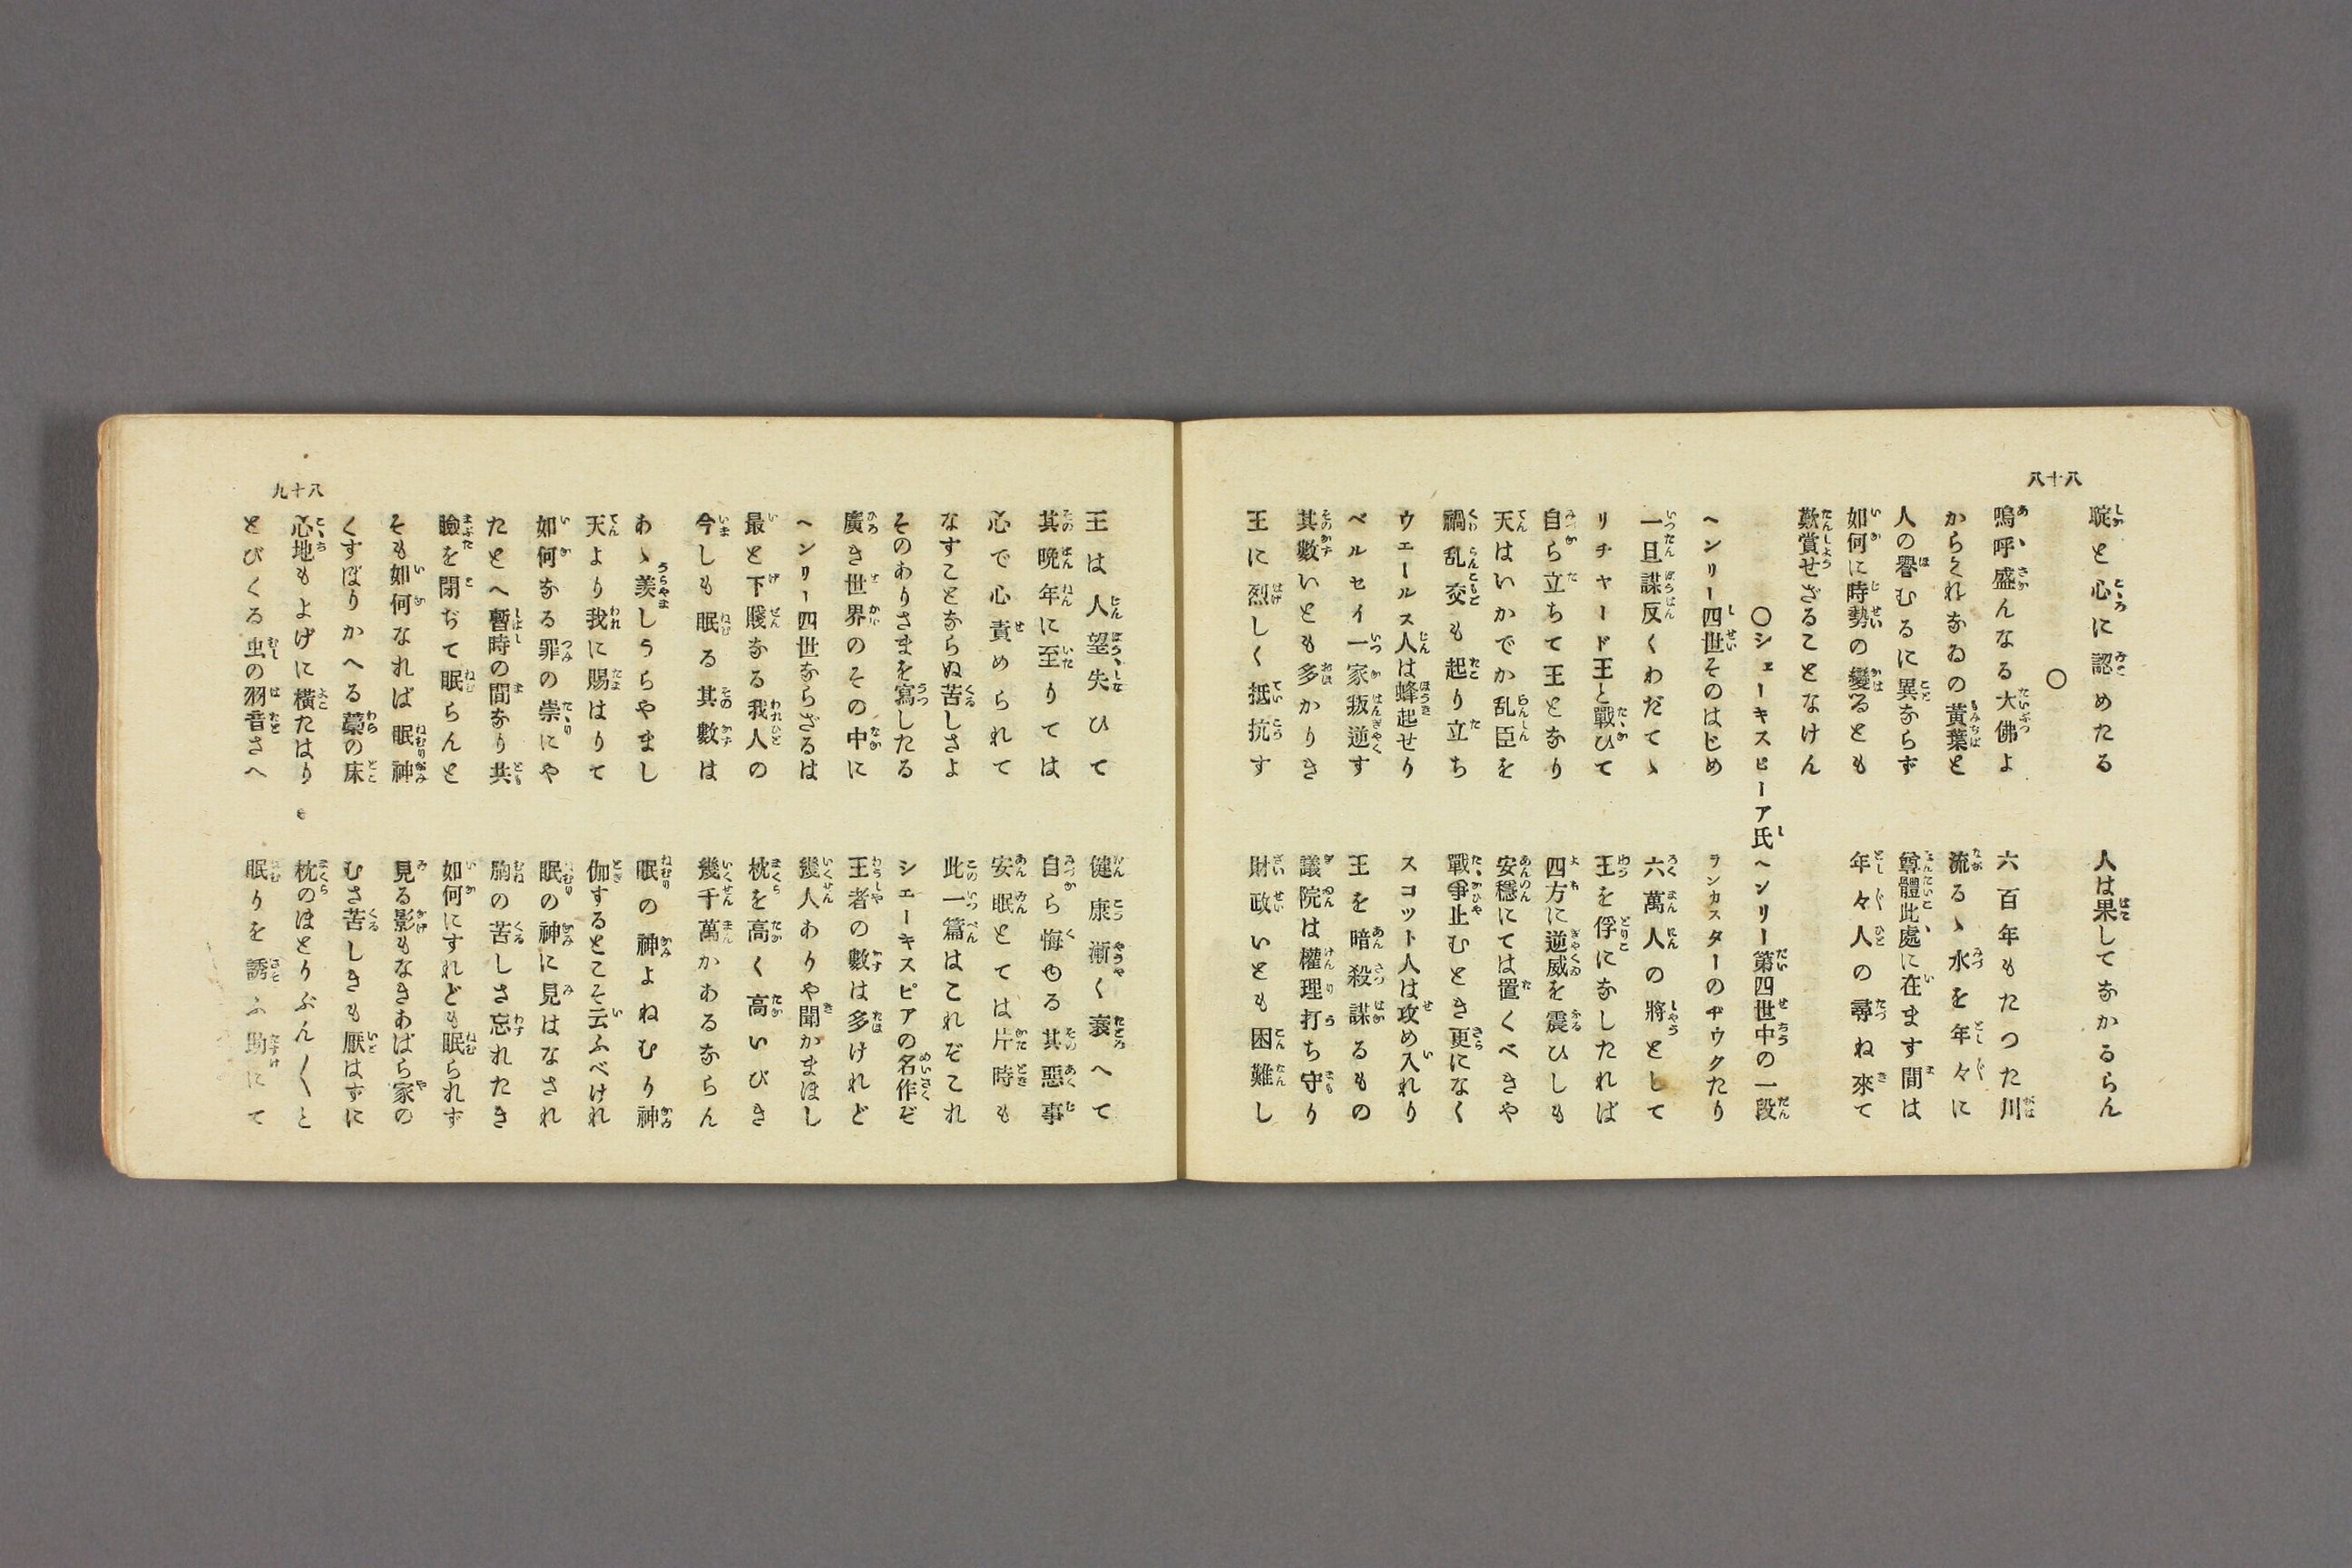 八十八
聢と心に認めたる　人は果してなかるらん
○
嗚呼盛んなる大佛よ　六百年もたつた川
からくれなゐの黄葉と　流るゝ水を年々に
人の譽むるに異ならず　尊體此處に在ます間は
如何に時勢の變るとも　年々人の尋ね來て
歎賞せざることなけん
○シェーキスピーア氏ヘンリー第四世中の一段
ヘンリー四世そのはじめ　ランカスターのヂウクたり
一旦謀反くわだてゝ　六萬人の將として
リチャード王と戰ひて　王を俘になしたれば
自ら立ちて王となり　四方に逆威を震ひしも
天はいかでか乱臣を　安穩にては置くべきや
禍乱交も起り立ち　戰爭止むとき更になく
ウェールス人は蜂起せり　スコット人は攻め入れり
ベルセイ一家叛逆す　王を暗殺謀るもの
其數いとも多かりき　議院は權理打ち守り
王に烈しく抵抗す　財政いとも困難し
八十九
王は人望失ひて　健康漸く衰へて
其晩年に至りては　自ら悔ゆる其惡事
心で心責められて　安眠とては片時も
なすことならぬ苦しさよ　此一篇はこれぞこれ
そのありさまを寫したる　シェーキスピアの名作ぞ
廣き世界のその中に　王者の數は多けれど
ヘンリー四世ならざるは　幾人ありや聞かまほし
最と下賤なる我人の　枕を高く高いびき
今しも眠る其數は　幾千萬かあるならん
あゝ羨しうらやまし　眠の神よねむり神
天より我に賜はりて　伽するとこそ云ふべけれ
如何なる罪の祟にや　眠の神に見はなされ
たとへ暫時の間なり共　胸の苦しさ忘れたき
瞼を閉ぢて眠らんと　如何にすれども眠られず
そも如何なれば眠神　見る影もなきあばら家の
くすぼりかへる藁の床　むさ苦しきも厭はずに
心地もよげに橫たはり　枕のほとりぶん〱と
とびくる虫の羽音さへ　眠りを誘ふ助にて